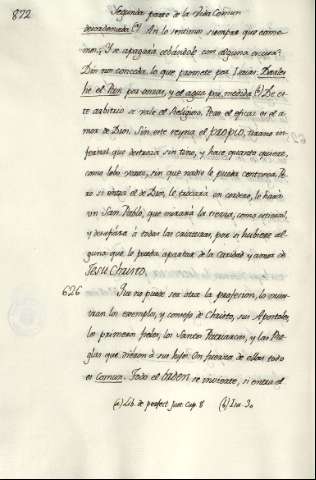 872
Segunda parte de la Vida Comun
descadenada (a). Asi lo sentirian siempre que come
rian; Y se apagaria cebandole con alguna
Dios nos conceda lo que promete por Isaias,
he el Pan por onzas, y el agua por medida (b). De es-
te arbitrio se vale el Religioso. Pero el eficaz es el a-
mor de Dios. Sin este reyna el propio, tirano in-
fernal que destroza sin tino, y hace quanto quiere,
como lobo voraz, sin que nadie le pueda contener. Pe-
ro si entra el de Dios, le trocará en cordero, le hará
un San Pablo, que mirará la tierra, como estiercol,
y desafiara á todas las criaturas, por si hubiere al-
guna que le pueda apartar de la caridad y amor de
Jesu Christo.
626 Que no puede ser otra la profesion, lo mues-
tran los exemplos, y consejo de Christo, sus Apostoles,
los primeros fieles, los Santos Patriarcas, y las Re-
glas que dieron á sus hijos. En fuerza de ellas todo
es Comun. Todo el orden se invierte, si entra el
(a) Lib. de profect. Juv. Cap. 8 (b) Isa. 30